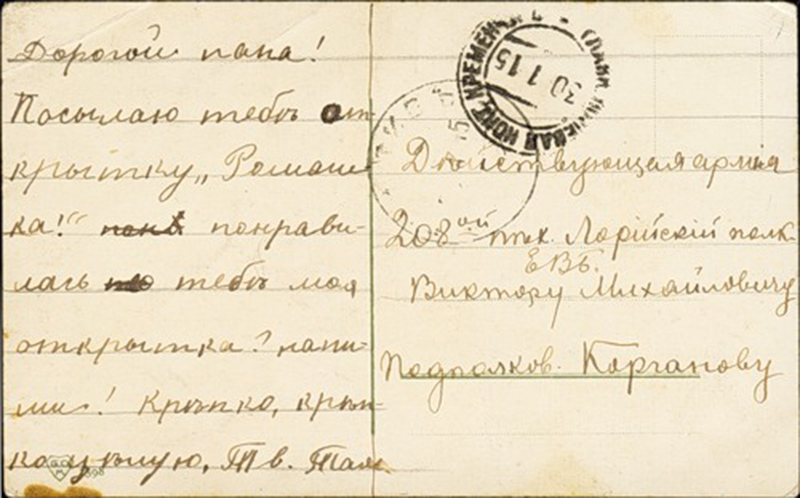 Дорогой папа!
Посылаю тебѣ от-
крытку „Ромаш-
ка!“ понрави-
лась тебѣ моя
открытка? напи-
ши! Крѣпко, крѣп-
ко цѣлую, Тв. Там
30 1 15
Дѣйствующая армія
208ой пѣх. Лорійскій полк
ЕВБ.
Виктору Михайловичу
Подполков. Корганову